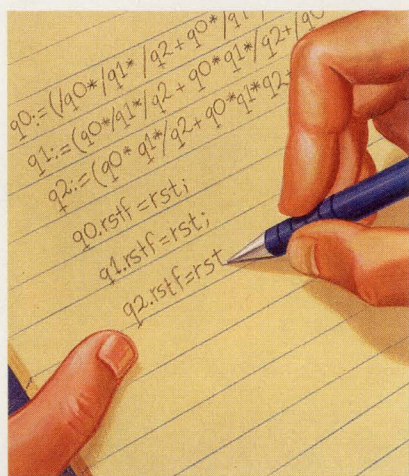 q0:=(/q0*/q1*/q2 + q0*/q1*/
q1:=(q0*/q1*/q2 + q0*q1*/q2+/q0
q2:=(q0*q1*/q2+q0*q1*q2+
q0.rstf=rst;
q1.rstf=rst;
q2.rstf=rst